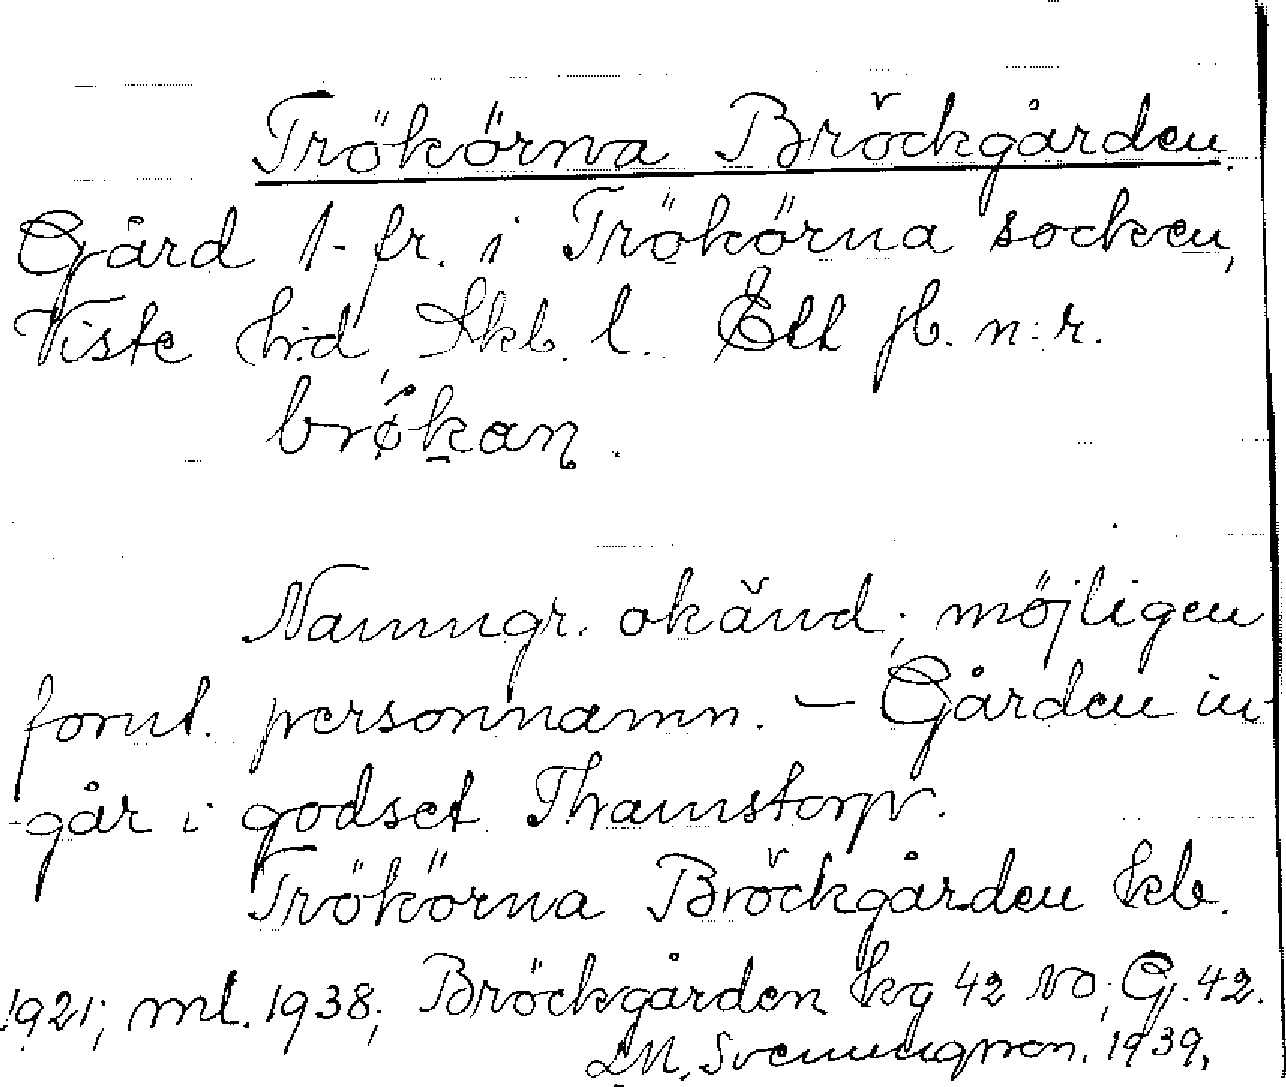 Trökörna Bröckgården.
Gård 1 fr. i Trökörna socken,
Viste hd, Skb. l. Ell fb. n:r.
brökan.
Namngr. okänd; möjligen
fornt. personnamn. – Gården in-
går i godset Thamstorp.
Trökörna Bröckgården kb.
1921; ml. 1938; Bröckgården kg 42 NO; G. 42.
D.M. Svenningsson. 1939.